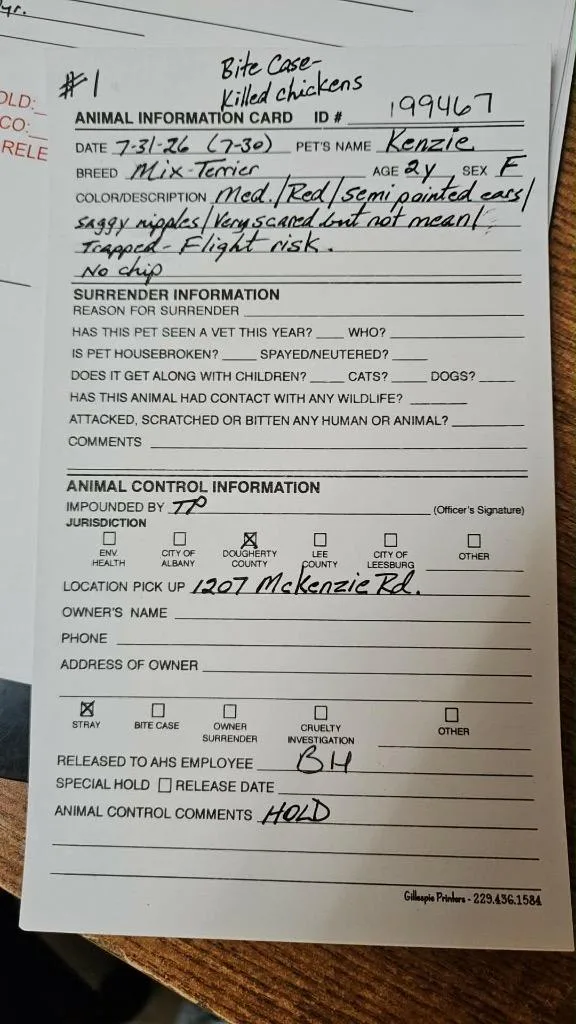 yr.
OLD:_
CO:_
RELE
#1
Bite Case-
Killed chickens
ANIMAL INFORMATION CARD ID # 199467
DATE 7-31-26 (7-30) PET'S NAME Kenzie
BREED Mix-Terrier AGE 2y SEX F
COLOR/DESCRIPTION Med./Red/semi pointed ears/
saggy nipples/Very scared but not mean/
Trapped- Flight risk.
No chip
SURRENDER INFORMATION
REASON FOR SURRENDER
HAS THIS PET SEEN A VET THIS YEAR? ___ WHO?
IS PET HOUSEBROKEN? ____ SPAYED/NEUTERED? ____
DOES IT GET ALONG WITH CHILDREN? ____ CATS? ____ DOGS? ____
HAS THIS ANIMAL HAD CONTACT WITH ANY WILDLIFE? ____
ATTACKED, SCRATCHED OR BITTEN ANY HUMAN OR ANIMAL? ____
COMMENTS
ANIMAL CONTROL INFORMATION
IMPOUNDED BY TP (Officer's Signature)
JURISDICTION
☐ ENV. HEALTH ☐ CITY OF ALBANY ☒ DOUGHERTY COUNTY ☐ LEE COUNTY ☐ CITY OF LEESBURG ☐ OTHER
LOCATION PICK UP 1207 McKenzie Rd.
OWNER'S NAME
PHONE
ADDRESS OF OWNER
☒ STRAY ☐ BITE CASE ☐ OWNER SURRENDER ☐ CRUELTY INVESTIGATION ☐ OTHER
RELEASED TO AHS EMPLOYEE BH
SPECIAL HOLD ☐ RELEASE DATE
ANIMAL CONTROL COMMENTS HOLD
Gillespie Printers - 229.436.1584